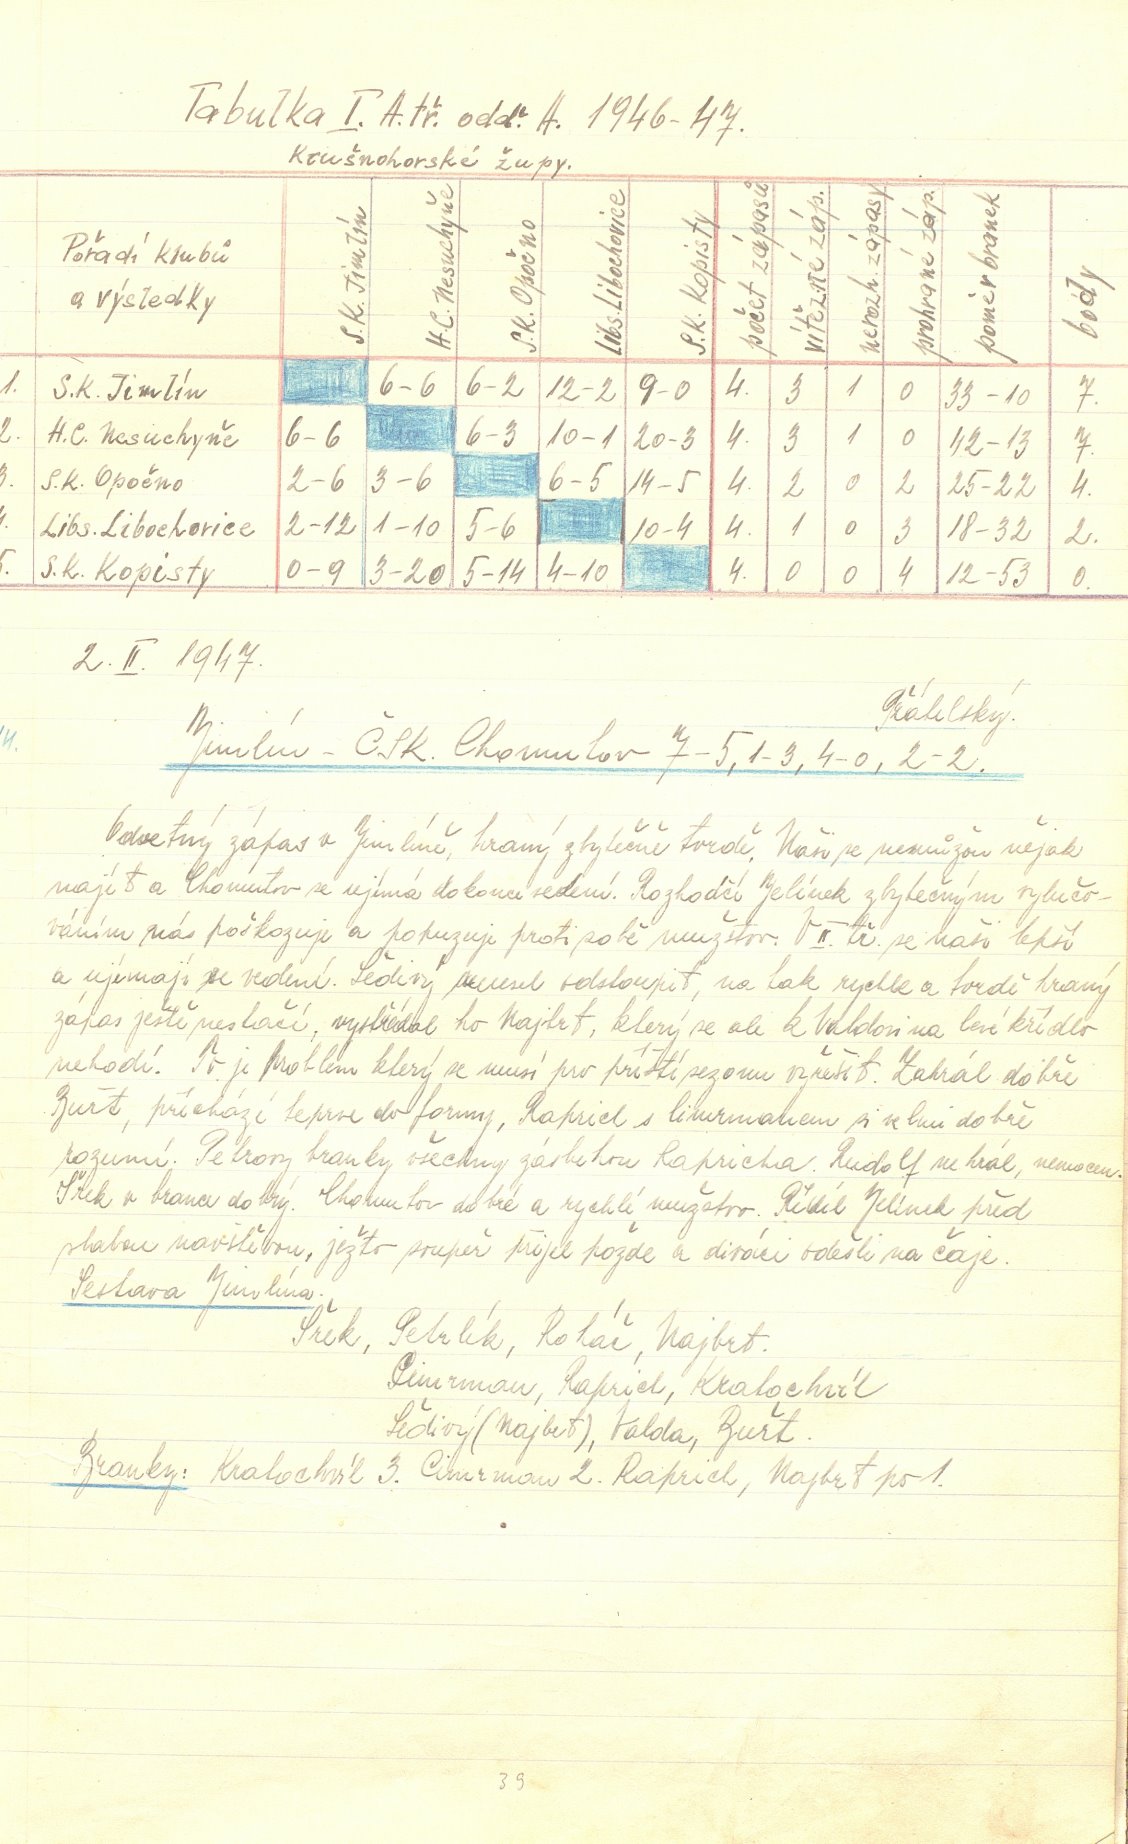 Tabulka I. A. tř. odd. A. 1946-47.
Krušnohorské župy.
Pořadí klubů a výsledky S.K. Jimlín H.C. Nesuchyňe S.K. Opočno Libs. Libochovice S.K. Kopisty počet zápasů vítězné záp. nerozh. zápasy prohrané záp. poměr branek body
1. S.K. Jimlín 6-6 6-2 12-2 9-0 4. 3 1 0 33-10 7.
2. H.C. Nesuchyňe 6-6 6-3 10-1 20-3 4. 3 1 0 42-13 7.
3. S.K. Opočno 2-6 3-6 6-5 14-5 4. 2 0 2 25-22 4.
4. Libs. Libochovice 2-12 1-10 5-6 10-4 4. 1 0 3 18-32 2.
5. S.K. Kopisty 0-9 3-20 5-14 4-10 4. 0 0 4 12-53 0.
2. II. 1947.
Přátelský.
14.
Jimlín - Č.S.K. Chomutov 7-5, 1-3, 4-0, 2-2.
Odvetný zápas v Jimlíně, hraný zbytečně tvrdě. Naši se nemůžou nějak
najít a Chomutov se ujímá dokonce vedení. Rozhodčí Jelínek zbytečným vylučo-
váním nás poškozuje a popuzuje proti sobě mužstvo. V II. tř. se naši lepší
a ujímají se vedení. Šedivý musel odstoupit, na tak rychle a tvrdě hraný
zápas ještě nestačí, vystřídal ho Najbrt, který se ale k Valdovi na levé křídlo
nehodí. To je problém který se musí pro příští sezonu vyřešit. Zahrál dobře
Buřt, přichází teprve do formy, Kaprich s Cimrmanem si velmi dobře
rozumí. Petrovy branky všechny zásluhou Kapricha. Rudolf nehrál, nemocen.
Srek v brance dobrý. Chomutov dobré a rychlé mužstvo. Řídil Jelínek před
slabou návštěvou, ježto soupeř přijel pozdě a diváci odešli na čaje.
Sestava Jimlína.
Srek, Petrlík, Roháč, Najbrt.
Cimrman, Kaprich, Kratochvíl
Šedivý (Najbrt), Valda, Buřt.
Branky: Kratochvíl 3. Cimrman 2. Kaprich, Najbrt po 1.
39